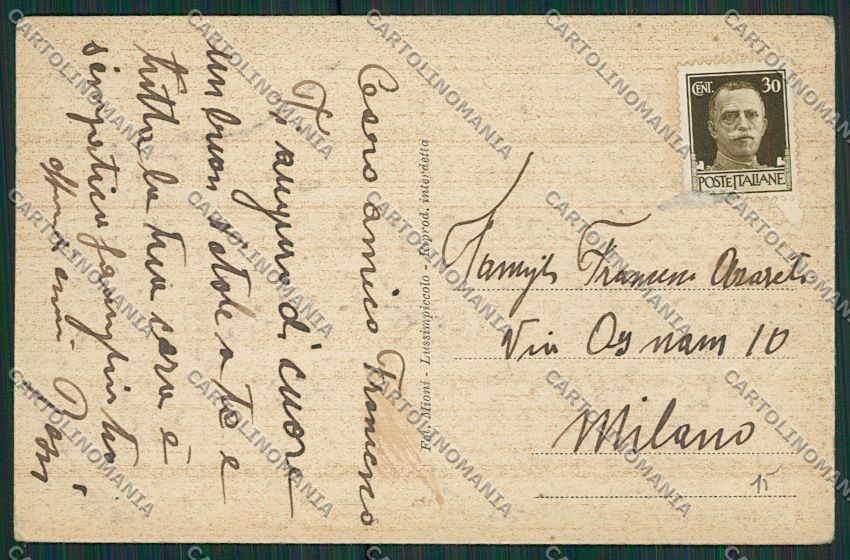 Cesero amico Francesco
Ti auguro di cuore
un buon Natale a te e
tutta la tua cara è
simpatica famiglia tua
Fot. Mioni - Lussimpiccolo - Riprod. interdetta
CENT. 30
POSTE ITALIANE
Famigl. Francesco
Via Osnam 10
Milano
15
CARTOLINOMANIA